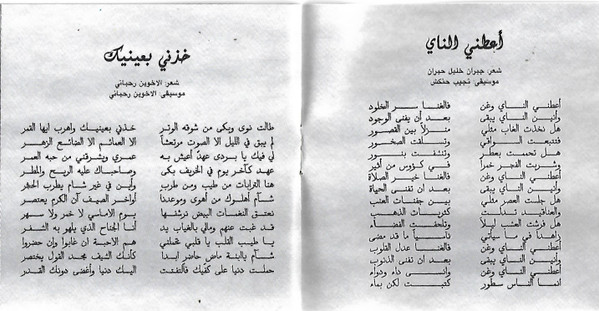 أعطني الناي
شعر: جبران خليل جبران
موسيقى: نجيب حنكش
أعطني الناي وغن فالغنا سر الخلود
وأنين الناي يبقى بعد ان يفنى الوجود
هل تخذت الغاب مثلي منزلاً بين القصور
فتتبعت السواقي وتسلقت الصخور
هل تحممت بعطر وتنشفت بنور
وشربت الفجر خمرا في كؤوس من أثير
أعطني الناي وغن فالغنا خير الصلاة
وأنين الناي يبقى بعد ان تفنى الحياة
هل جلست العصر مثلي بين جفنات العنب
والعناقيد تدلت كثريات الذهب
هل فرشت العشب ليلا وتلحفت الفضاء
زاهدا في ما سيأتي ناسيا ما قد مضى
أعطني الناي وغن فالغنا عدل القلوب
وأنين الناي يبقى بعد ان تفنى الذنوب
أعطني الناي وغن وانسى داء ودواء
انما الناس سطور كتبت لكن بماء
خذني بعينيك
شعر: الاخوين رحباني
موسيقى: الاخوين رحباني
خذني بعينيك واهرب ايها القمر
طالت نوى وبكى من شوقه الوتر
لم يبق في الليل الا الصوت مرتعشا
الا الحمائم الا الضائع الزهر
لي فيك يا بردى عهد أعيش به
عمري ويسرقني من حبه العمر
عهد كآخر يوم في الخريف بكى
وصاحباك عليه الريح والمطر
هنا الترابات من طيب ومن طرب
وأين في غير شام يطرب الحجر
شآم أهلوك من أهوى وموعدنا
أواخر الصيف آن الكرم يعتصر
نعتق النغمات البيض نرشفها
يوم الاماسي لا خمر ولا سهر
قد غبت عنهم ومالي بالغياب يد
أنا الجناح الذي يلهو به السفر
يا طيب القلب يا قلبي تحملني
هم الاحبة ان غابوا وإن حضروا
شآم يا ابنة ماض حاضر ابدا
كأنك السيف مجد القول يختصر
حملت دنيا على كفيك فالتفتت
اليك دنيا وأغضى دونك القدر